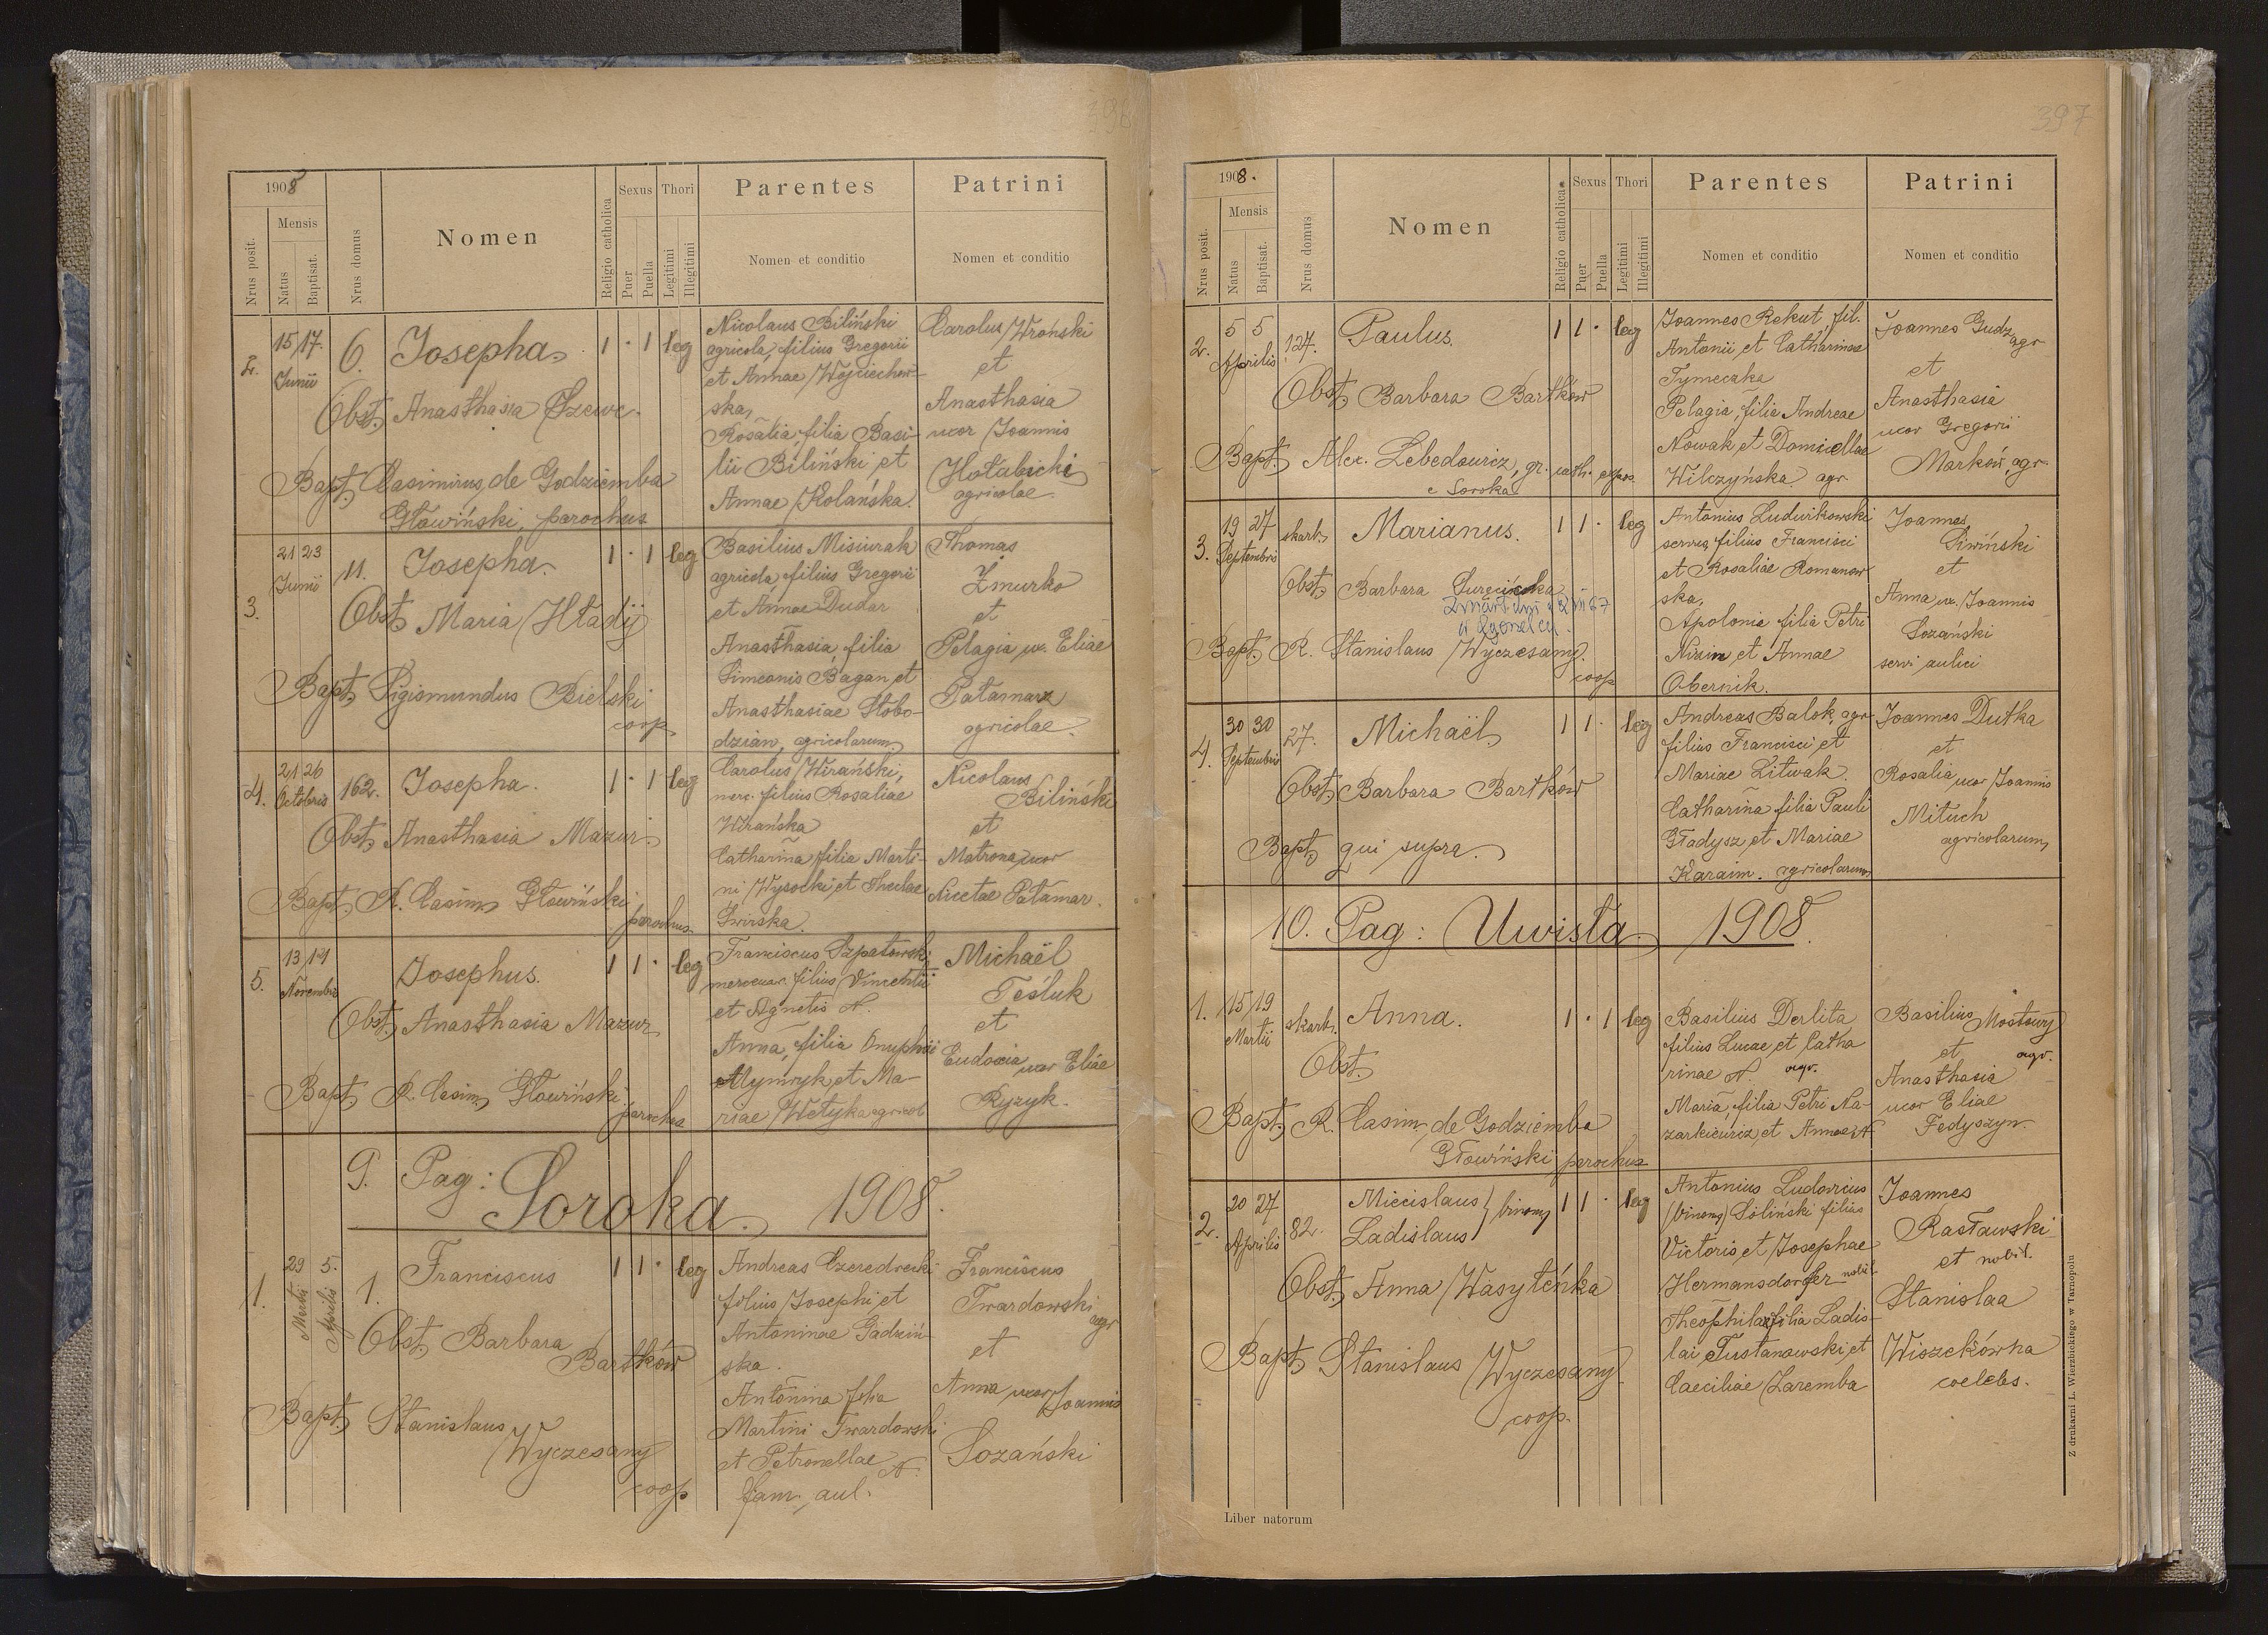 396
1908
Nrus posit.
Mensis
Natus
Baptisat.
Nrus domus
Nomen
Religio catholica
Sexus
Puer
Puella
Thori
Legitimi
Illegitimi
Parentes
Nomen et conditio
Patrini
Nomen et conditio
2.
15 17.
Junii
6.
Josepha
1 · 1 leg
Obst. Anasthasia Szewc.
Bapt. Casimirus de Godziemba
Głowiński, parochus
Nicolaus Biliński
agricola, filius Gregorii
et Annae Wojciechow-
ska,
Rosalia, filia Basi-
lii Biliński et
Annae Kolańska.
Carolus Wroński
et
Anasthasia
uxor Joannis
Hołabicki
agricolae.
3.
21 23
Junii
11.
Josepha.
1 · 1 leg
Obst. Maria Hładij
Bapt. Sigismundus Bielski
coop.
Basilius Misiurak
agricola, filius Gregorii
et Annae Dudar
Anasthasia, filia
Simeonis Bagan et
Anasthasiae Słobo-
dzian, agricolarum
Thomas
Żmurko
et
Pelagia ux. Eliae
Patamarz
agricolae.
4.
21 26
Octobris
162.
Josepha.
1 · 1 leg
Obst. Anasthasia Mazur.
Bapt. R. Casim. Głowiński
parochus
Carolus Wirański,
merc. filius Rosaliae
Wirańska
Catharina filia Marti-
ni Wysocki et Theclae
Świrska.
Nicolaus
Biliński
et
Matrona, uxor
Nicetae Patamar.
5.
13 14
Novembris
Josephus.
1 1 · leg
Obst. Anasthasia Mazur
Bapt. R. Casim. Głowiński
parochus
Franciscus Szpatowski
mercenar. filius Vincentii
et Agnetis N.
Anna, filia Onuphrii
Ałymryk et Ma-
riae Wetyka agricol.
Michaël
Teśluk
et
Eudoxia uxor Eliae
Ryzyk.
9. Pag: Soroka. 1908.
1.
29 5.
Martii Aprilis
1.
Franciscus
1 1 · leg
Obst. Barbara
Bartków
Bapt. Stanislaus
Wyczesany
coop
Andreas Czeredrecki
filius Josephi et
Antoninae Gadziń-
ska.
Antonina filia
Martini Twardowski
et Petronellae N.
fam. aul.
Franciscus
Twardowski
agr
et
Anna uxor Joannis
Sozański
397
1908.
Nrus posit.
Mensis
Natus
Baptisat.
Nrus domus
Nomen
Religio catholica
Sexus
Puer
Puella
Thori
Legitimi
Illegitimi
Parentes
Nomen et conditio
Patrini
Nomen et conditio
2.
5 5
Aprilis
127.
Paulus.
1 1 · leg
Obst. Barbara Bartków
Bapt. Alex. Lebedowicz, gr. cath. expos.
e Soroka
Joannes Rekut, fil.
Antonii et Catharinae
Tymeczka
Pelagia, filia Andreae
Nowak et Domicellae
Wilczyńska agr.
Joannes Gudz
agr
et
Anasthasia
uxor Gregorii
Marków, agr
3.
19 27
Septembris
skarb.
Marianus.
1 1 · leg
Obst. Barbara
Bapt. R. Stanislaus Wyczesany.
coop
Antonius Ludwikowski
servus, filius Francisci
et Rosaliae Romanow
ska,
Apolonia filia Petri
Nizin et Annae
Obernik.
Joannes
Siwiński
et
Anna ux. Joannis
Sozański
servi aulici
4.
30 30
Septembris
27.
Michaël
1 1 · leg
Obst. Barbara Bartków
Bapt. qui supra.
Andreas Balok, agr
filius Francisci et
Mariae Litwak.
Catharina filia Pauli
Gładysz et Mariae
Karaim. agricolarum
Joannes Dutka
et
Rosalia uxor Joannis
Mituch
agricolarum
10. Pag: Uwisła. 1908.
1.
15 19
Martii
skarb.
Anna.
1 · 1 leg
Obst.
Bapt. R. Casim. de Godziemba
Głowiński parochus
Basilius Derlita
filius Lucae et Catha
rinae N. agr.
Maria, filia Petri Na-
zarkiewicz et Annae N
Basilius Mostowy
et agr.
Anasthasia
uxor Eliae
Fedyszyn.
2.
20 27
Aprilis
82.
Miecislaus
Ladislaus } binom
1 1 · leg
Obst. Anna Wasyleńka
Bapt. Stanislaus Wyczesany
coop.
Antonius Ludovicus
(binom) Soliński filius
Victoris et Josephae
Hermansdorfer nobil.
Theophila filia Ladis-
lai Tustanowski et
Caeciliae Zaremba
Joannes
Rasławski
et nobil.
Stanislaa
Wiszckówna
coelebs.
Liber natorum
Z drukarni L. Wierzbickiego w Tarnopolu